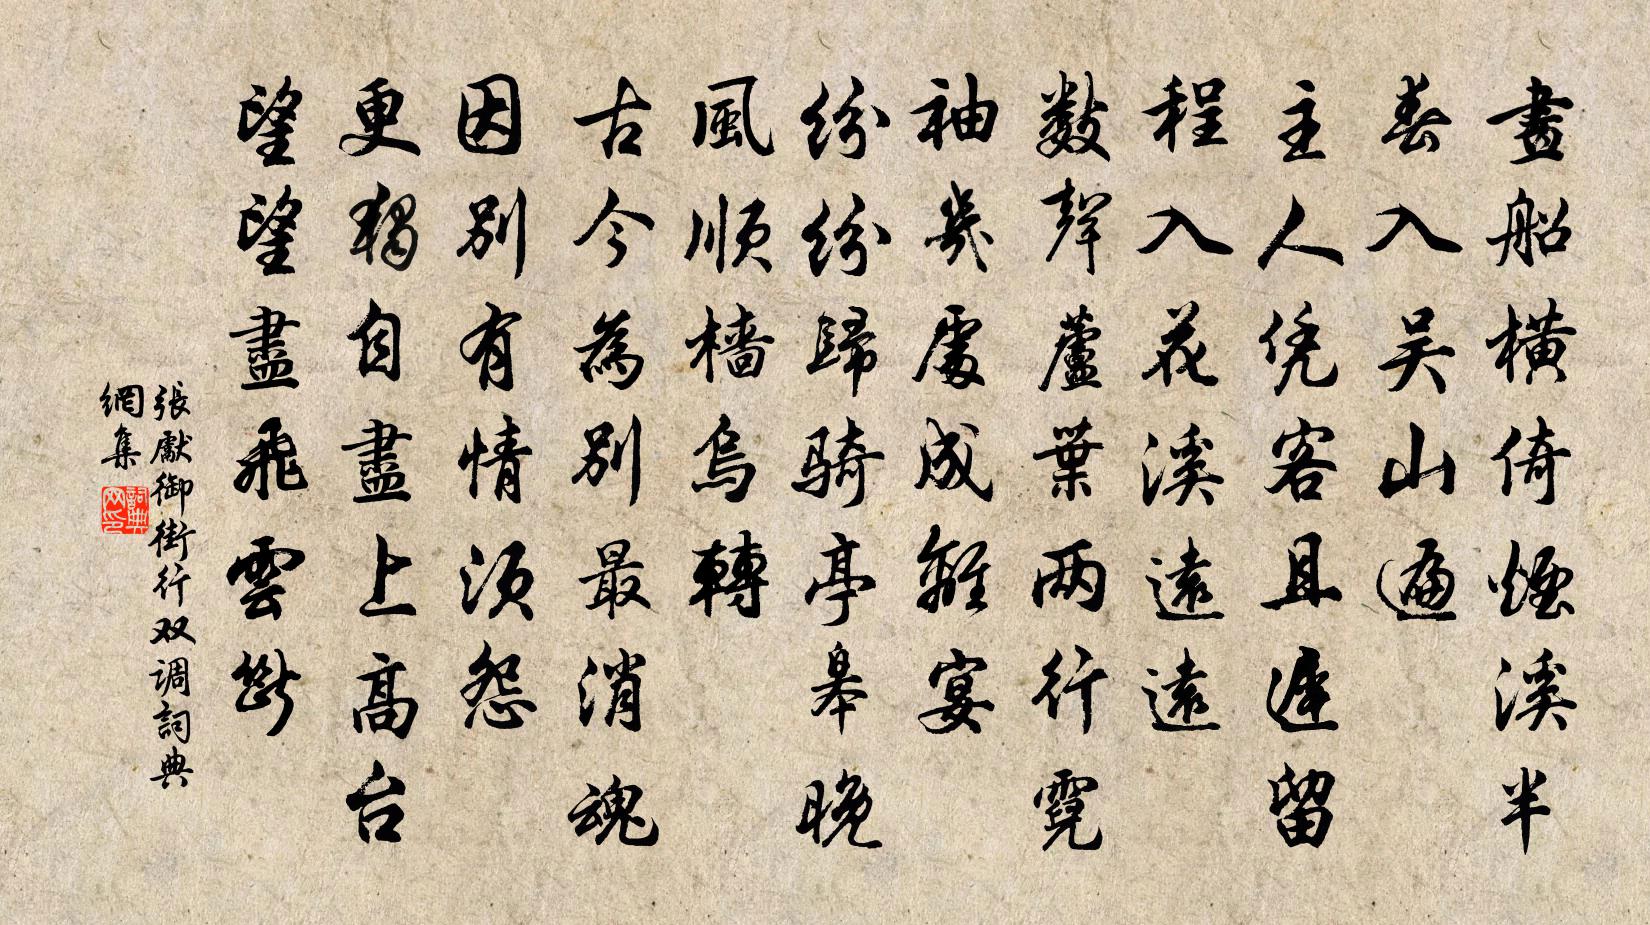 畫船橫倚煙溪半
春入吴山遍
主人凭客且遲留
程入花溪遠遠
數聲蘆葉兩行霓
袖幾處成離宴
紛紛歸騎亭皋晚
風順檣烏轉
古今為別最消魂
因別有情須怨
更獨自盡上高台
望望盡飛雲斷
張獻御街行双调詞典
網集
詞典
网印